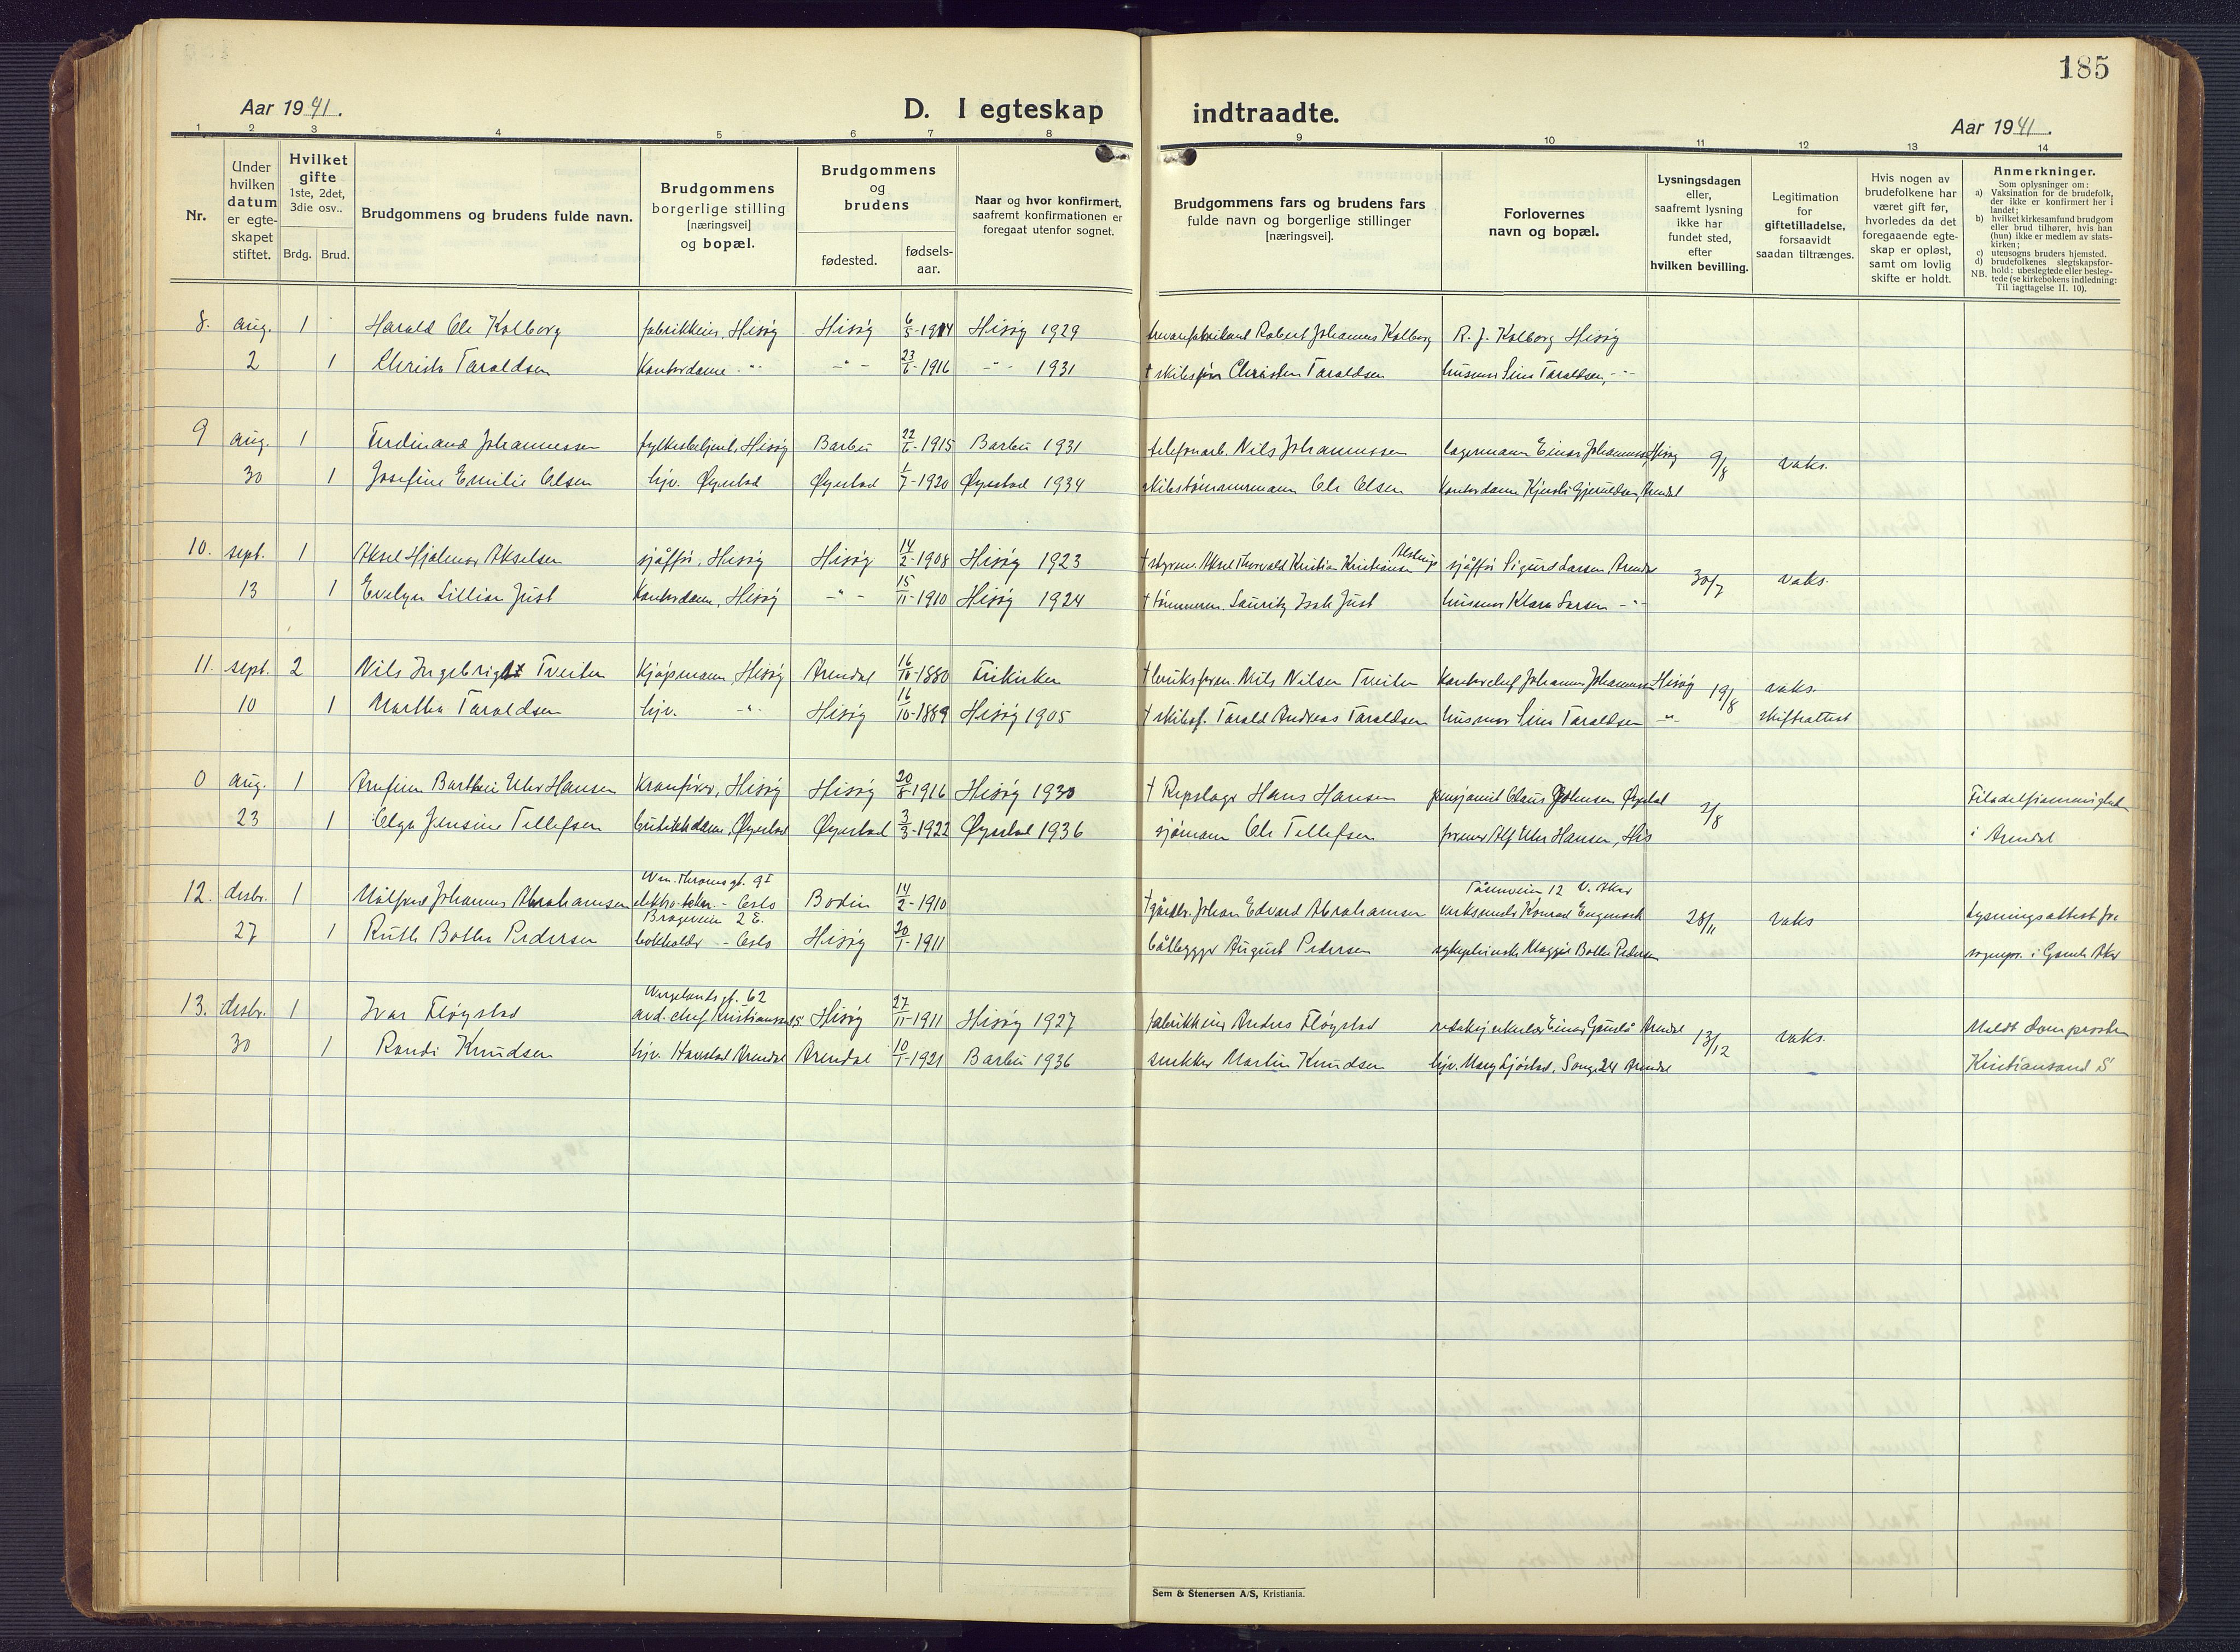 185
Aar 1941.
D. I egteskap indtraadte.
Aar 1941.
1 2 3 4 5 6 7 8 9 10 11 12 13 14
Nr.
Under hvilken datum er egte-skapet stiftet.
Hvilket gifte 1ste, 2det, 3die osv..
Brdg. Brud.
Brudgommens og brudens fulde navn.
Brudgommens borgerlige stilling [næringsvei] og bopæl.
Brudgommens og brudens
fødested.
fødsels-aar.
Naar og hvor konfirmert, saafremt konfirmationen er foregaat utenfor sognet.
Brudgommens fars og brudens fars fulde navn og borgerlige stillinger [næringsvei].
Forlovernes navn og bopæl.
Lysningsdagen eller, saafremt lysning ikke har fundet sted, efter hvilken bevilling.
Legitimation for giftetilladelse, forsaavidt saadan tiltrænges.
Hvis nogen av brudefolkene har været gift før, hvorledes da det foregaaende egte-skap er opløst, samt om lovlig skifte er holdt.
Anmerkninger.
Som oplysninger om:
a) Vaksination for de brudefolk, der ikke er konfirmert her i landet;
b) hvilket kirkesamfund brudgom eller brud tilhører, hvis han (hun) ikke er medlem av stats-kirken;
c) utensogns bruders hjemsted.
d) brudefolkenes slegtskapsfor-hold: ubeslegtede eller besleg-tede (se kirkebokens indledning: Til iagttagelse II. 10).
NB.
8. aug. 1 Harald Ole Kolborg fabrikkeier, Hisøy Hisøy 6/5-1914 Hisøy 1929 Robert Johannes Kolborg R. J. Kolborg Hisøy
2 1 Christa Taraldsen Kontordame -"- -"- 23/6-1916 -"- 1931 † skibsfører Christen Taraldsen husmor Sina Taraldsen, -"-
9 aug. 1 Ferdinand Johannessen Hisøy Barbu 22/6-1915 Barbu 1931 telefonarb. Nils Johannessen lagermann Einar Johannessen Hisøy 9/8 vaks.
30 1 Josefine Emilie Olsen hjv. Øyestad Øyestad 1/7-1920 Øyestad 1934 skibstømmermann Ole Olsen Kontordame Kjersti Gjeruldsen, Arendal
10. sept. 1 Aksel Hjalmar Akselsen sjåfør, Hisøy Hisøy 14/2-1908 Hisøy 1923 † styrm. Aksel Thorvald Kristian Kristiansen sjåfør Sigurd Larsen Arendal 30/7 vaks.
13 1 Evelyn Lillian Just Kontordame, Hisøy -"- 15/11-1910 Hisøy 1924 † tømmerm. Lauritz Isak Just husmor Klara Larsen -"-
11. sept. 2 Nils Ingebrigt Tveiten Kjøpmann, Hisøy Arendal 16/10-1880 Frikirken † bruksform. Nils Nilsen Tveiten Kontorchef Johannes Johannessen Hisøy 19/8 vaks.
10 1 Martha Taraldsen hjv. -"- Hisøy 16/10-1889 Hisøy 1905 † skibsf. Tarald Andreas Taraldsen husmor Sina Taraldsen -"- skifteattest
0 aug. 1 Arnfinn Hansen Kranfører, Hisøy Hisøy 20/8-1916 Hisøy 1930 † Repslager Hans Hansen pensjonist Claus Johnsen Øyestad 2/8 Filadelfiamenighet
23 1 Olga Jensine Tellefsen butikkdame, Øyestad Øyestad 3/3-1922 Øyestad 1936 sjømann Ole Tellefsen Alf Uhr Hansen, His i Arendal
12. desbr. 1 Wilfred Johannes Abrahamsen Wm. Thranesgt. 9 I - Oslo Bodin 14/2-1910 † gårdbr. Johan Edvard Abrahamsen Tåsenveien 12 V. Aker verksmester Konrad Engemark 28/11 vaks lysningsattest fra
27 1 Ruth Botha Pedersen Brageveien 2 E. bokholder - Oslo Hisøy 20/1-1911 båtbygger August Pedersen Maggie Botha Pedersen sognepr. i Gamle Aker
13. desbr. 1 Ivar Fløystad Wergelandsgt. 62 avd. chef Kristiansand S Hisøy 27/11-1911 Hisøy 1927 fabrikkeier Anders Fløystad Einar Arendal 13/12 vaks. Meldt domprosten
30 1 Randi Knudsen hjv. Havstad Arendal Arendal 10/1-1921 Barbu 1936 snekker Martin Knudsen hjv. Mary Sjöstad, Songe 24 Arendal Kristiansand S
Sem & Stenersen A/S, Kristiania.